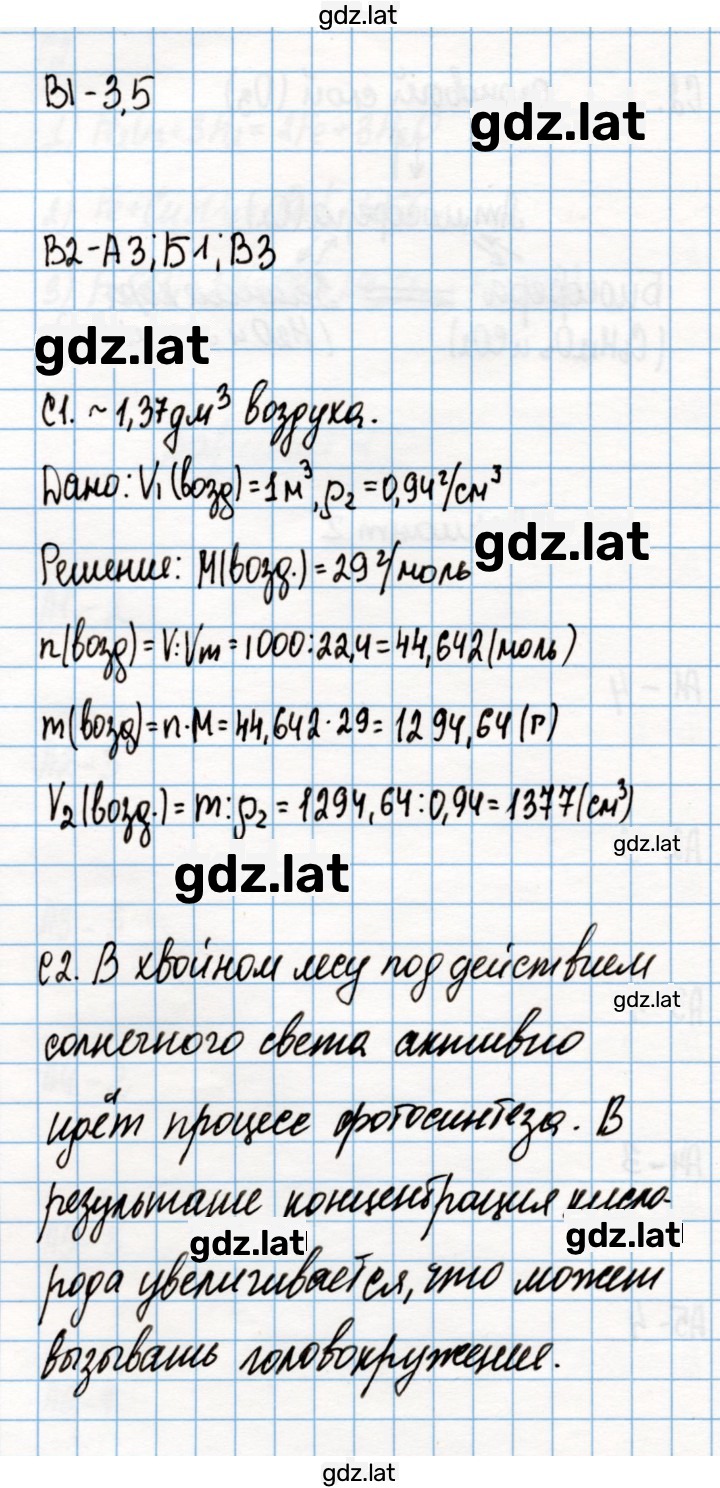 gdz.lat
В1 - 3,5
gdz.lat
В2 - А3; Б1; В3
gdz.lat
С1. ~ 1,37 дм³ воздуха.
Дано: V₁(возд) = 1 м³, ρ₂ = 0,94 г/см³
gdz.lat
Решение: М(возд.) = 29 г/моль
n(возд) = V:Vm = 1000:22,4 = 44,642 (моль)
m(возд) = n·M = 44,642·29 = 1294,64 (г)
V₂(возд.) = m:ρ₂ = 1294,64:0,94 = 1377 (см³)
gdz.lat
gdz.lat
С2. В хвойном лесу под действием
gdz.lat
солнечного света активно
идёт процесс фотосинтеза. В
результате концентрация кисло-
gdz.lat
gdz.lat
рода увеличивается, что может
вызывать головокружение.
gdz.lat